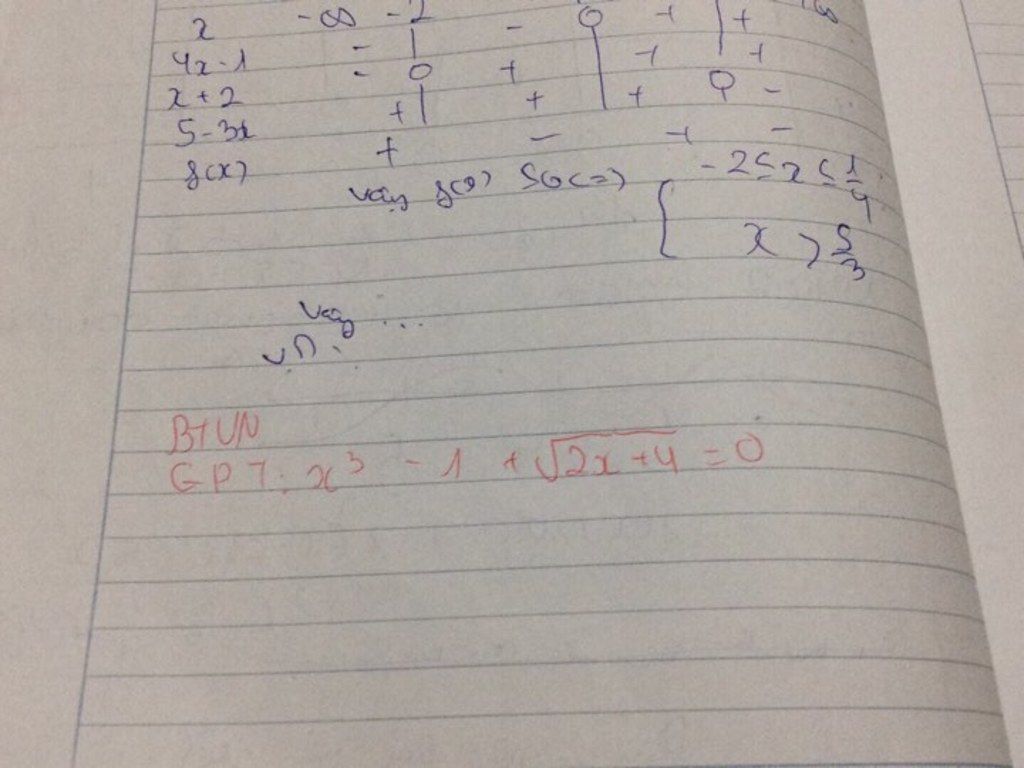 x -∞ -2
4x-1 - | - 0 + | +
x+2 - 0 + | + | +
5-3x + | + | + 0 -
f(x) + - + -
Vậy f(x) ≤ 0 <=> [ -2 ≤ x ≤ 1/4
x > 5/3
Vậy ...
BTVN
GPT: x³ - 1 + √2x+4 = 0